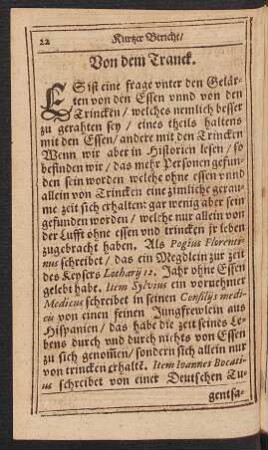 22 Kurtzer Bericht/
Von dem Tranck.
ES ist eine frage vnter den Gelär-
ten von den Essen vnnd von den
Trincken/ welches nemlich besser
zu gerahten sey/ eines theils haltens
mit den Essen/ andere mit den Trincken
Wenn wir aber in Historien lesen/ so
befinden wir/ das mehr Personen gefun-
den sein worden welche ohne essen vnnd
allein von Trincken eine zimliche gerau-
me zeit sich erhalten: gar wenig aber sein
gefunden worden/ welche nur allein von
der Lufft ohne essen vnd trincken jr leben
zugebracht haben. Als Pogius Florenti-
nus schreibet/ das ein Megdlein zur zeit
des Keysers Lotharij 12. Jahr ohne Essen
gelebt habe. Item Sylvius ein vornehmer
Medicus schreibet in seinen Consilijs medi-
cis von einen feinen Jungfrewlein aus
Hispanien/ das habe die zeit seines Le-
bens durch vnd durch nichts von Essen
zu sich genommen/ sondern sich allein nur
von trincken erhaltē. Item Ioannes Bocati-
us schreibet von einer Deutschen Tu-
gentsa-